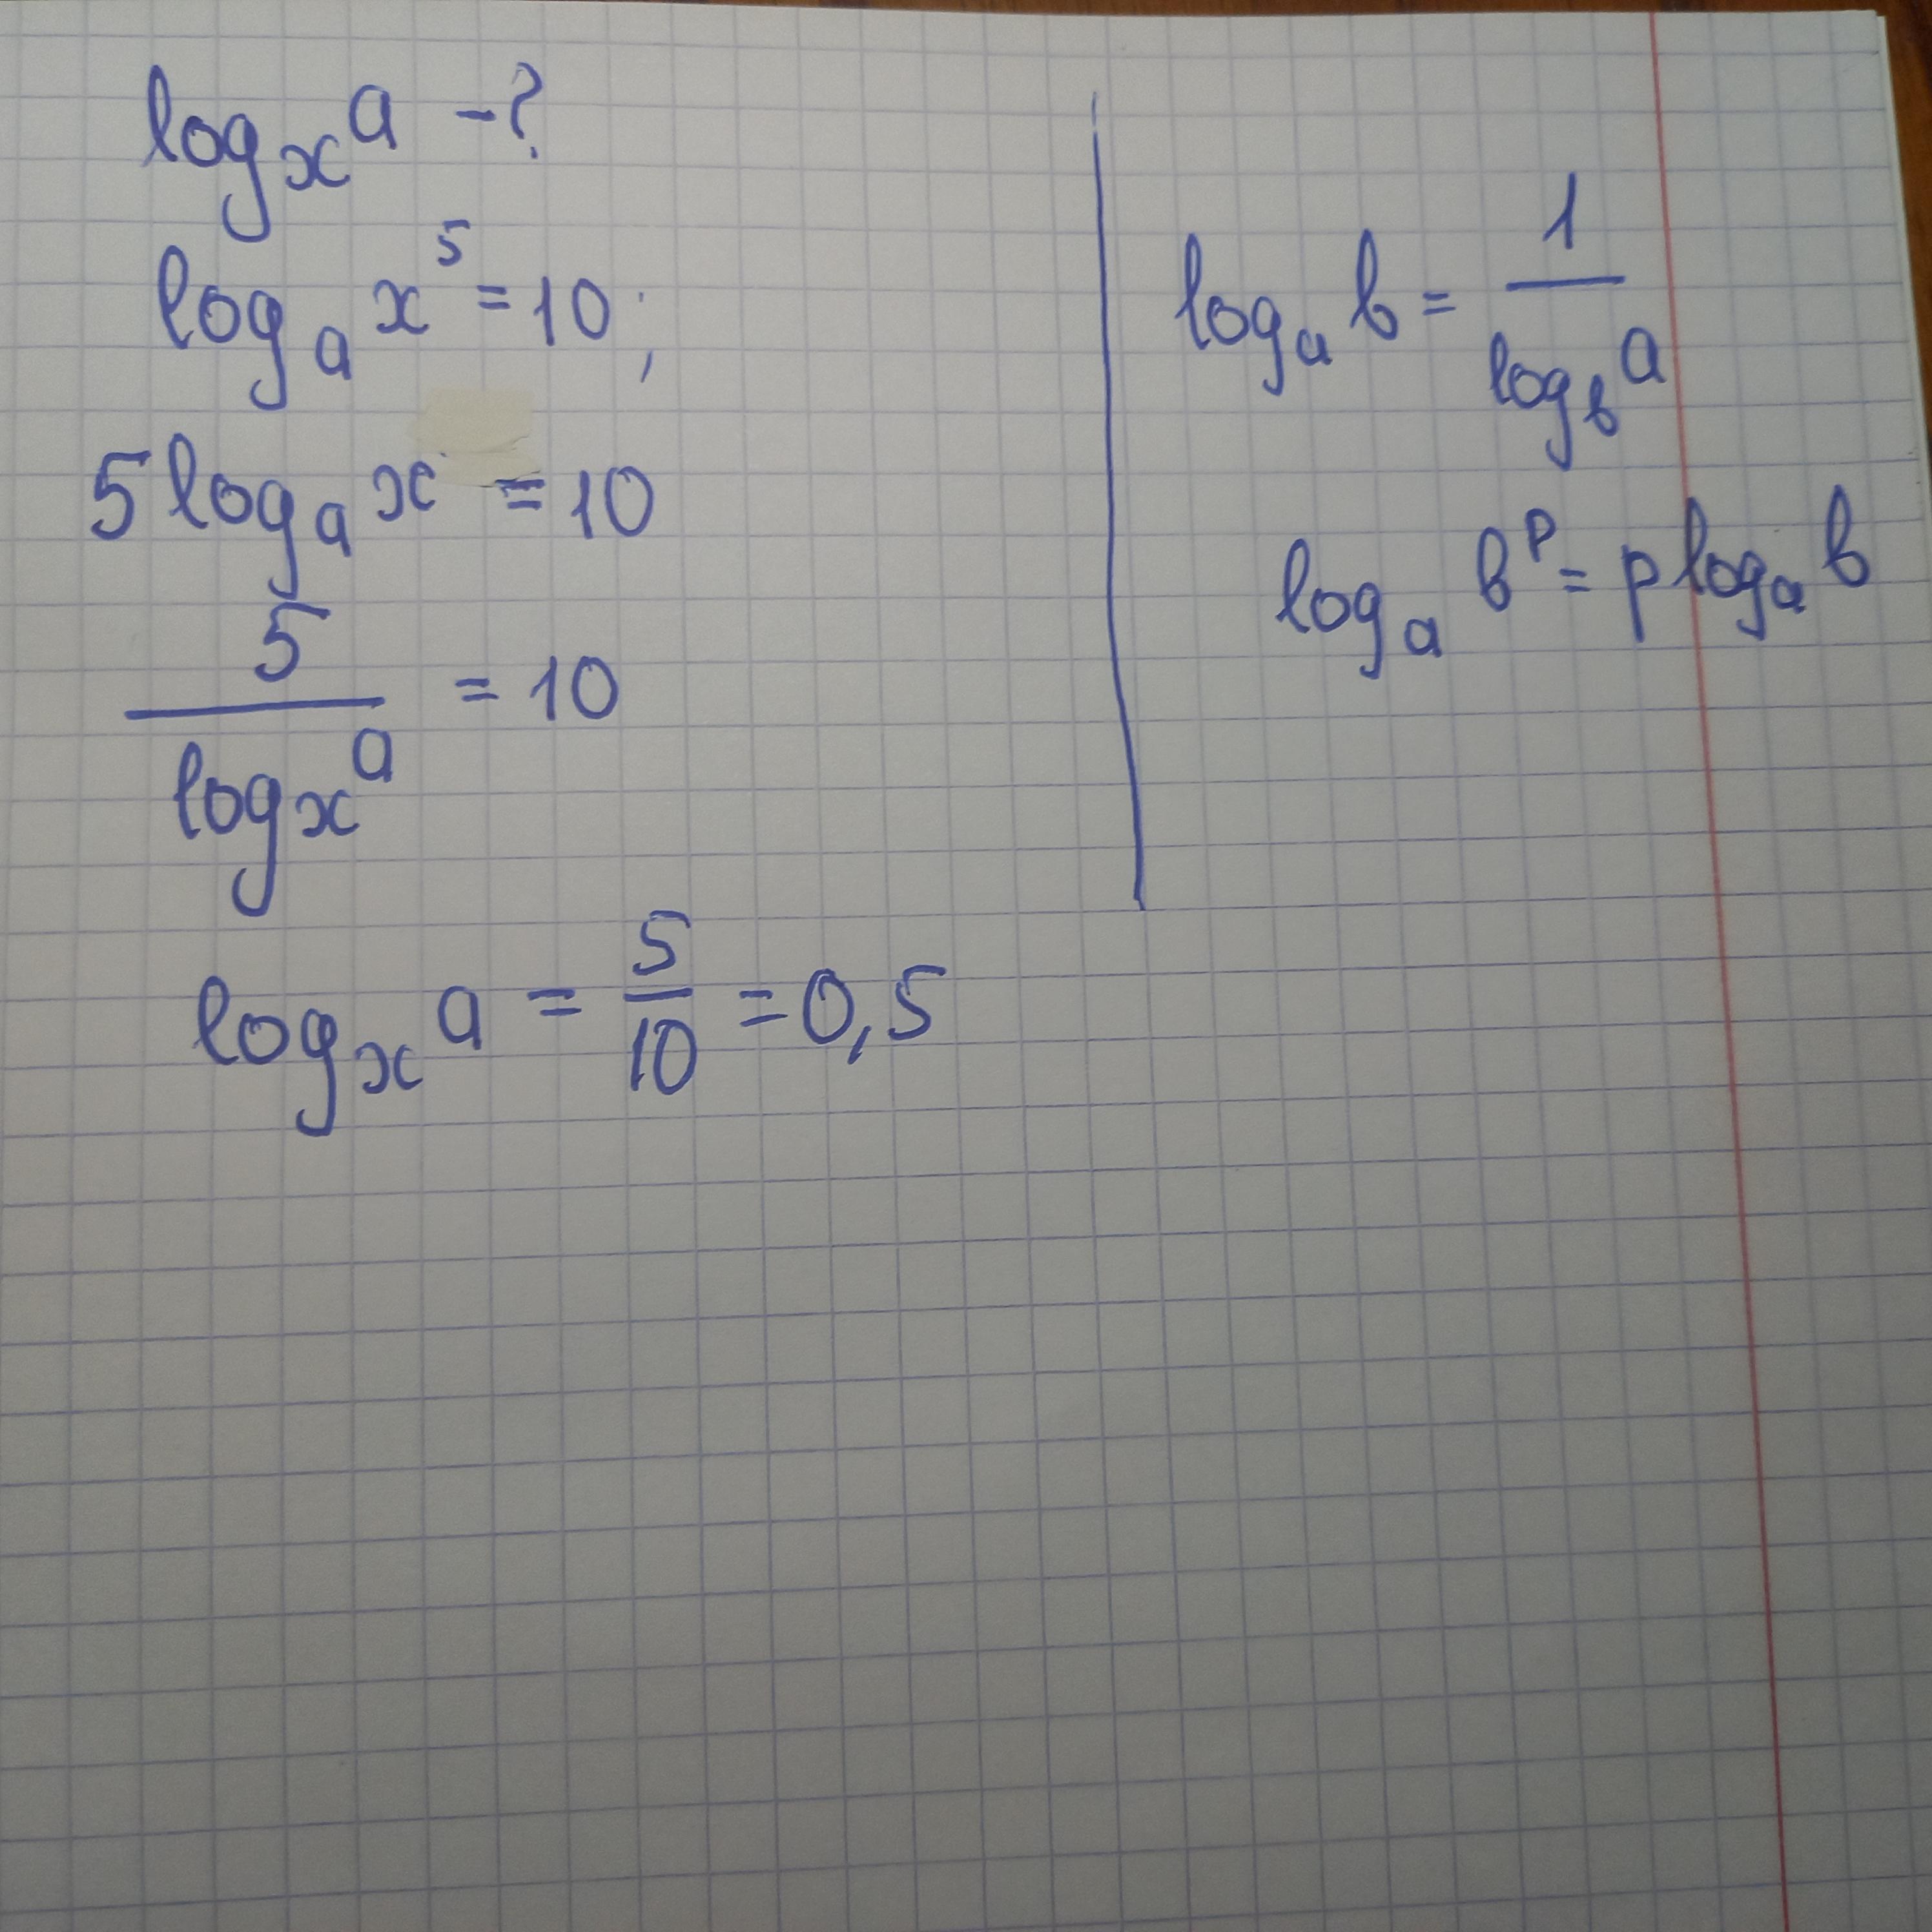 logₓ a - ?
logₐ x⁵ = 10;
5 logₐ x = 10
5 / logₓ a = 10
logₓ a = 5/10 = 0,5
logₐ b = 1 / log_b a
logₐ b^p = p logₐ b